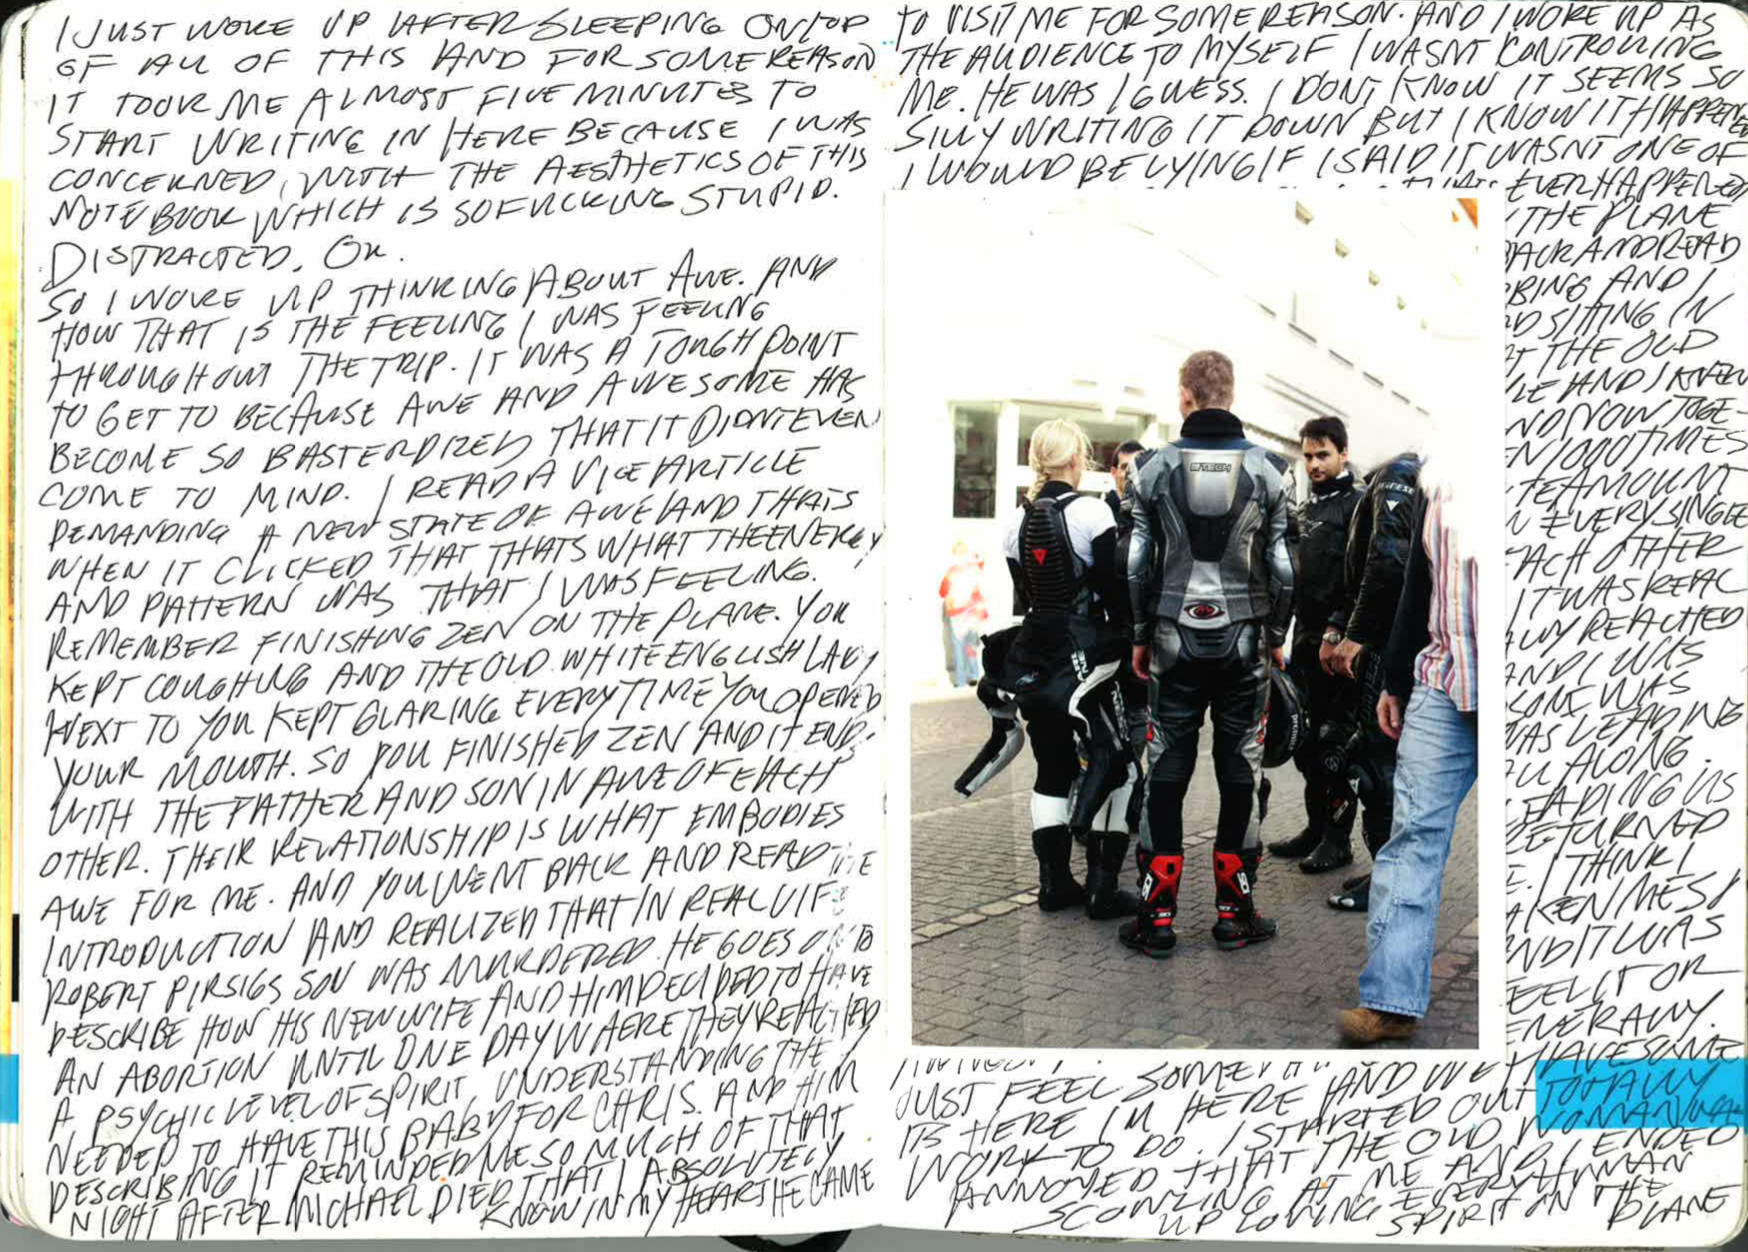 I JUST WOKE UP AFTER SLEEPING ON TOP
OF ALL OF THIS AND FOR SOME REASON
IT TOOK ME ALMOST FIVE MINUTES TO
START WRITING IN HERE BECAUSE I WAS
CONCERNED WITH THE AESTHETICS OF THIS
NOTEBOOK WHICH IS SO FUCKING STUPID.
DISTRACTED. OK.
SO I WOKE UP THINKING ABOUT AWE. AND
HOW THAT IS THE FEELING I WAS FEELING
THROUGHOUT THE TRIP. IT WAS A TOUGH POINT
TO GET TO BECAUSE AWE AND AWESOME HAS
BECOME SO BASTERDIZED THAT IT DIDNT EVEN
COME TO MIND. I READ A VICE ARTICLE
DEMANDING A NEW STATE OF AWE AND THATS
WHEN IT CLICKED THAT THATS WHAT THE ENERGY
AND PATTERN WAS THAT I WAS FEELING.
REMEMBER FINISHING ZEN ON THE PLANE. YOU
KEPT COUGHING AND THE OLD WHITE ENGLISH LADY
NEXT TO YOU KEPT GLARING EVERY TIME YOU OPENED
YOUR MOUTH. SO YOU FINISHED ZEN AND IT ENDS
WITH THE FATHER AND SON IN AWE OF EACH
OTHER. THEIR RELATIONSHIP IS WHAT EMBODIES
AWE FOR ME. AND YOU WENT BACK AND READ THE
INTRODUCTION AND REALIZED THAT IN REAL LIFE
ROBERT PIRSIGS SON WAS MURDERED. HE GOES ON TO
DESCRIBE HOW HIS NEW WIFE AND HIM DECIDED TO HAVE
AN ABORTION UNTIL ONE DAY WHERE THEY REACHED
A PSYCHIC LEVEL OF SPIRIT, UNDERSTANDING THEY
NEEDED TO HAVE THIS BABY FOR CHRIS. AND HIM
DESCRIBING IT REMINDED ME SO MUCH OF THAT
NIGHT AFTER MICHAEL DIED THAT I ABSOLUTELY
KNOW IN MY HEART HE CAME
TO VISIT ME FOR SOME REASON. AND I WOKE UP AS
THE AUDIENCE TO MYSELF I WASNT CONTROLLING
ME. HE WAS I GUESS. I DONT KNOW IT SEEMS SO
SILLY WRITING IT DOWN BUT I KNOW IT HAPPENED
I WOULD BE LYING IF I SAID IT WASNT ONE OF
EVER HAPPENED
THE PLANE
BACK AND READ
BING AND I
SITTING IN
THE OLD
AND I KNEW
NOW TOGE-
1000 TIMES
AMOUNT
EVERY SINGLE
EACH OTHER
IT WAS REAL
REACHED
AND I WAS
WAS
WAS LEADING
ALL ALONG.
LEADING US
RETURNED
I THINK I
MESI
AND IT WAS
FEEL IT OR
GENERALLY.
JUST FEEL SOMETHING AND WE HAVE SOME
ITS HERE IM HERE AND TOTALLY
WORK TO DO. I STARTED OUT
ANNOYED THAT THE OLD WOMAN WAS
SCOWLING AT ME AND I ENDED
UP LOVING EVERY HUMAN
SPIRIT ON THE PLANE